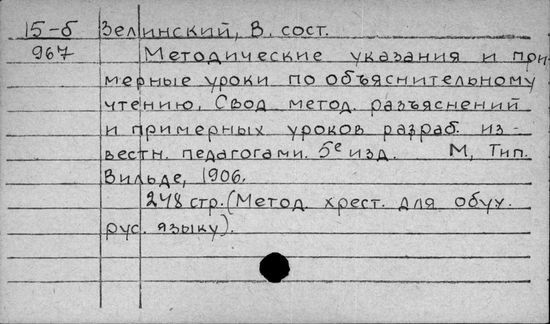 15-б Зелинский, В. сост.
967 Методические указания и при-
мерные уроки по объяснительному
чтению. Свод метод. разъяснений
и примерных уроков разраб. из-
вестн. педагогами. 5е изд. М, Тип.
Вильде, 1906.
248 стр. (Метод. хрест. для обуч.
рус. языку).